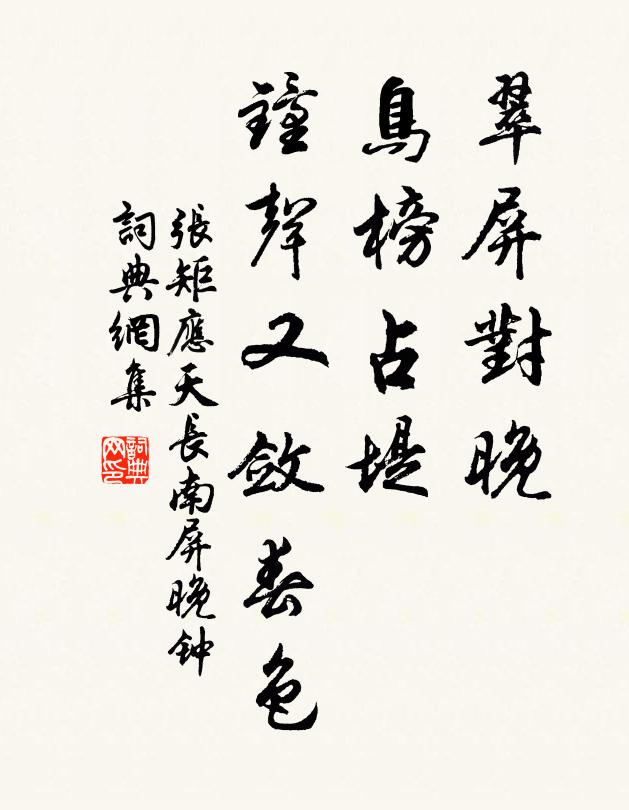 翠屏對晚
鳥榜占堤
鐘聲又斂春色
張矩應天長南屏晚钟
詞典網集
詞典網印